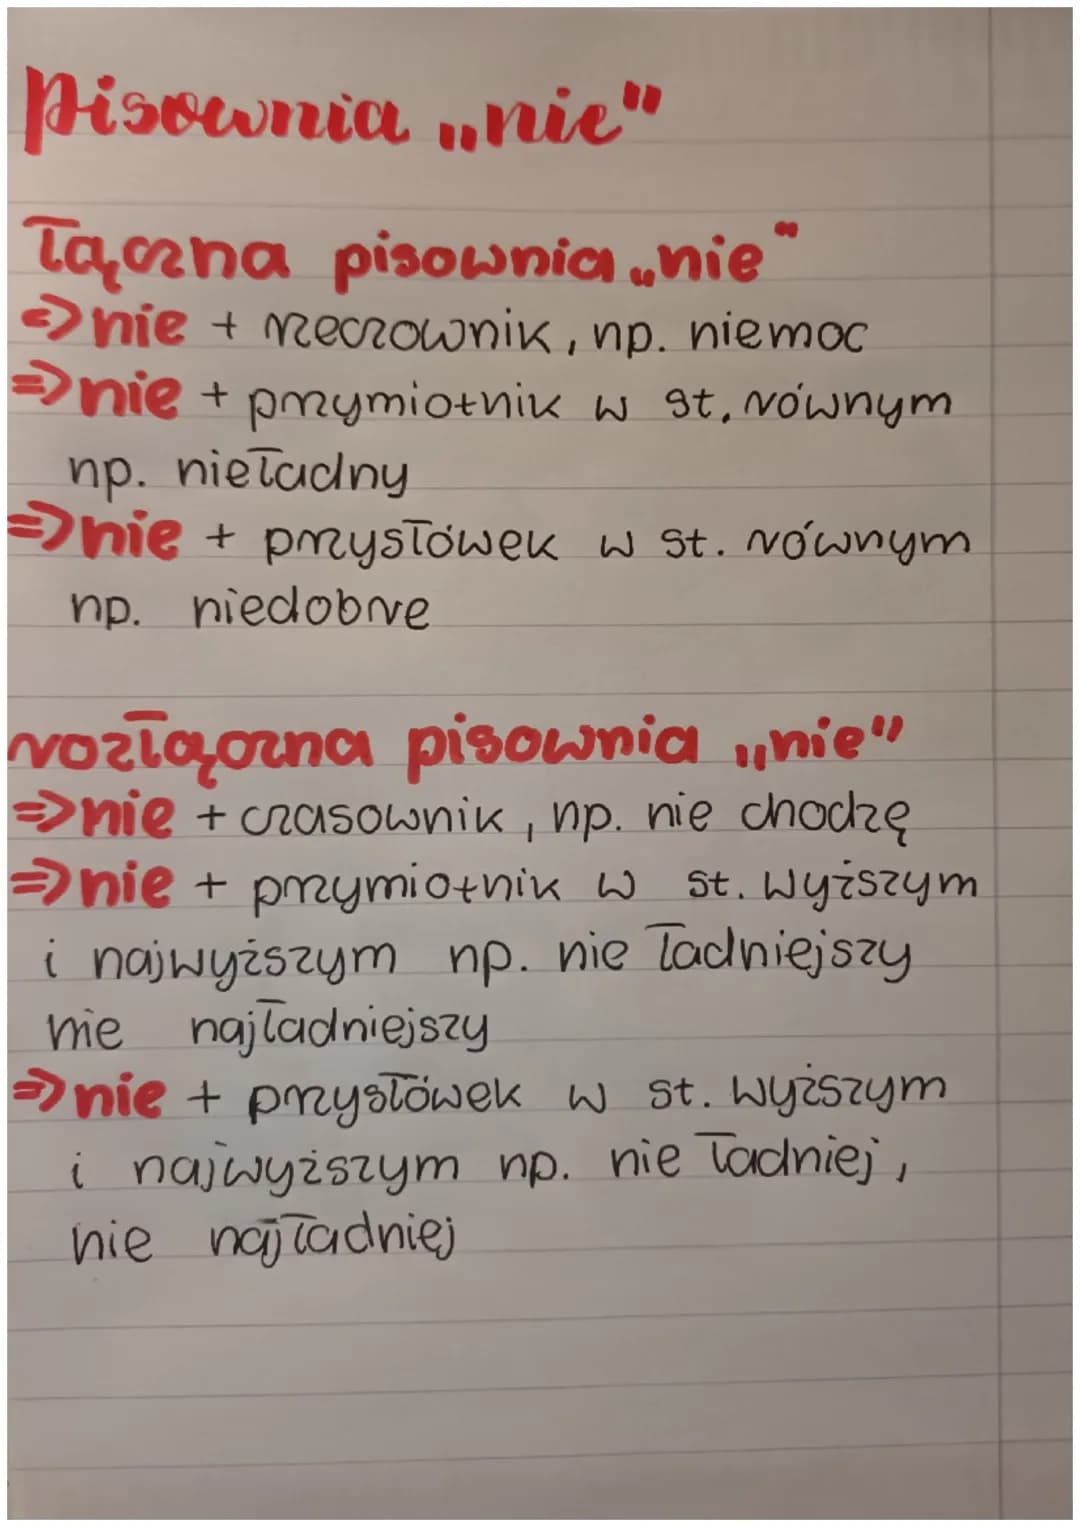 pisownia „nie"
Łączna pisownia „nie"
=> nie + rzeczownik, np. niemoc
=> nie + przymiotnik w st. równym
np. nieładny
=> nie + przysłówek w st. równym
np. niedobre
rozłączna pisownia „nie"
=> nie + czasownik, np. nie chodzę
=> nie + przymiotnik w st. wyższym
i najwyższym np. nie ładniejszy
nie najładniejszy
=> nie + przysłówek w st. wyższym
i najwyższym np. nie ładniej,
nie najładniej